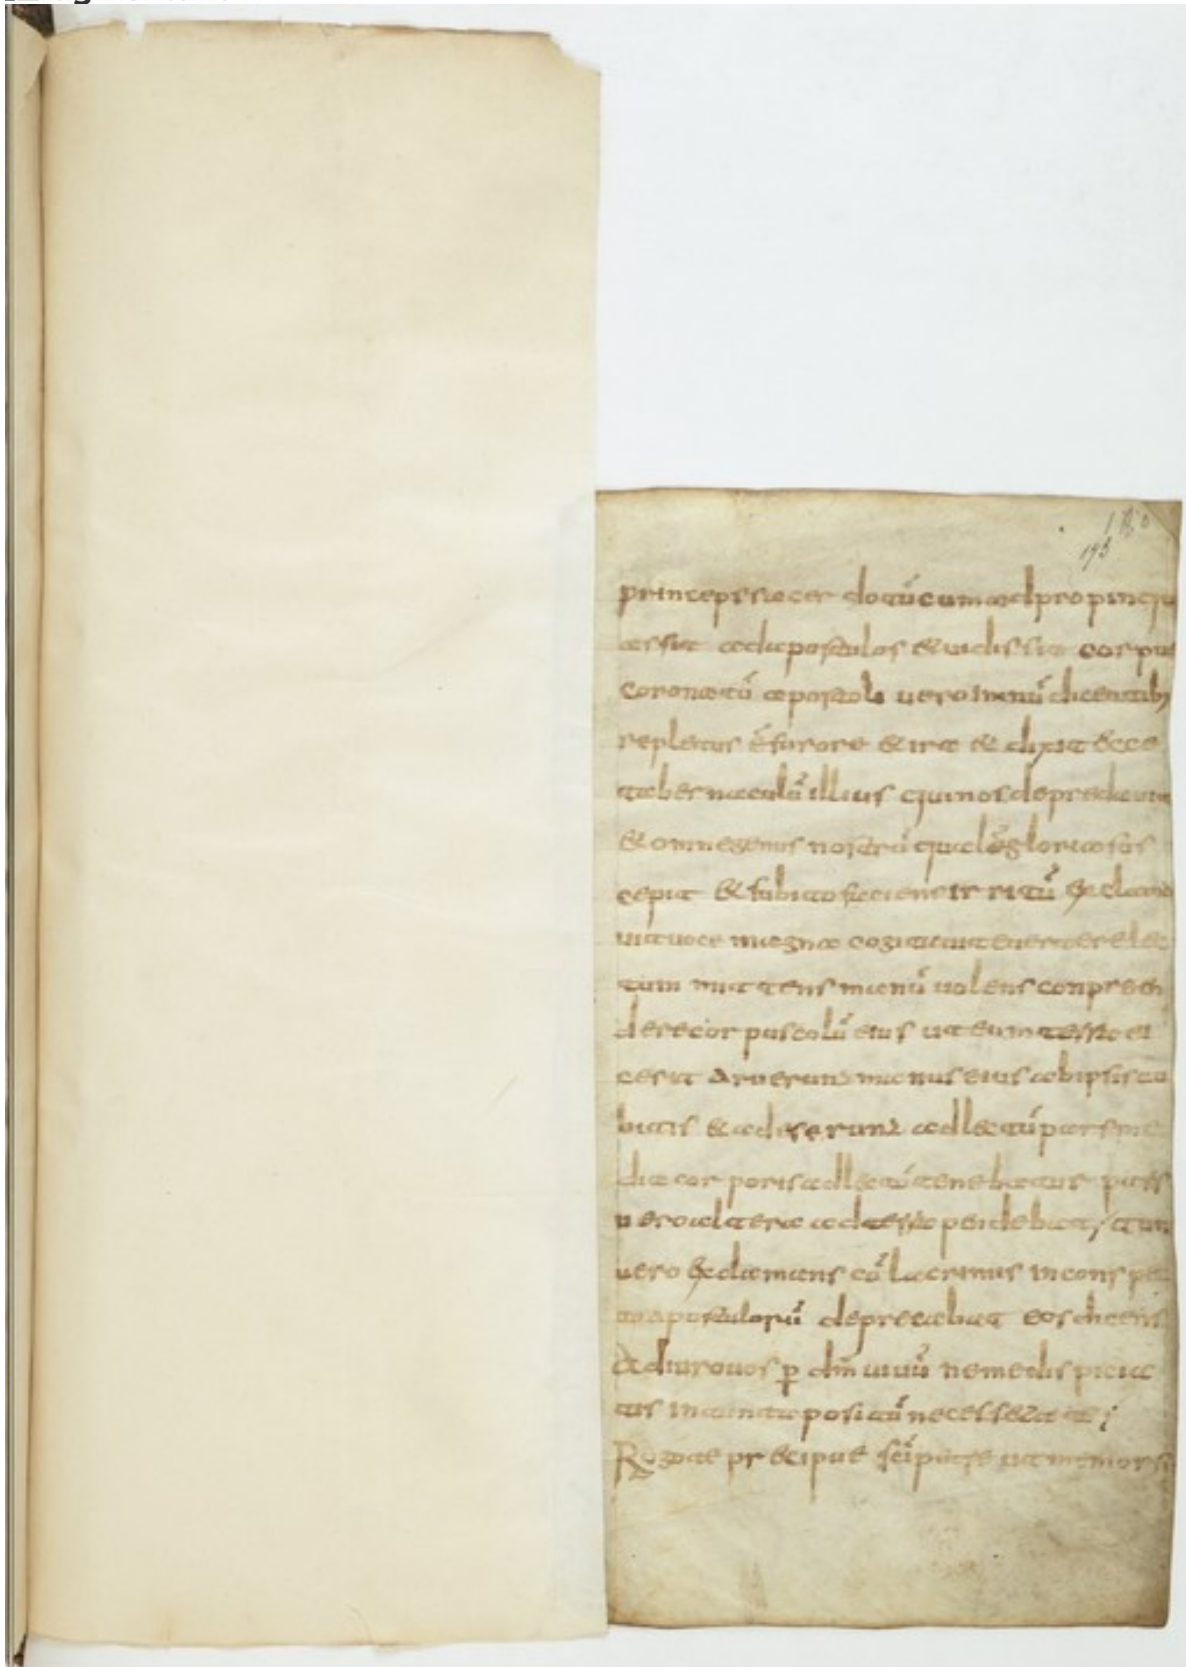 193
princeps sacer dotũ cum ad propinqu
assit ad apostolos & uidissit corpus
coronatũ apostoli uero imnũ dicentib;
repletus ẽ furore & ira & dixit ecce
tabernaculũ illius qui nos depredauit
& omne genus nostrũ qualẽ gloria sus
cepit & subito faciens ir ritũ exclama
uit uoce magna cogitauit euertere lec
tum mittens manũ uolens conpreen
dere cor puscolũ eius ut eum a terra ei
cerit Aruerunt manus eius ab ipsis cu
bitis & adeserunt ad lectũ pars me
dia cor poris ad lectũ tenebatur pars
uero altera ad terra pendebat; tun
uero exclamans cũ lacrimis in conspec
apostulorũ deprecabat eos dicens
Adiuro uos p dm̃ uiuũ ne me dispicia
tis in tanta positũ necessetate;
Rogote precipue scĩ petre ut memor si